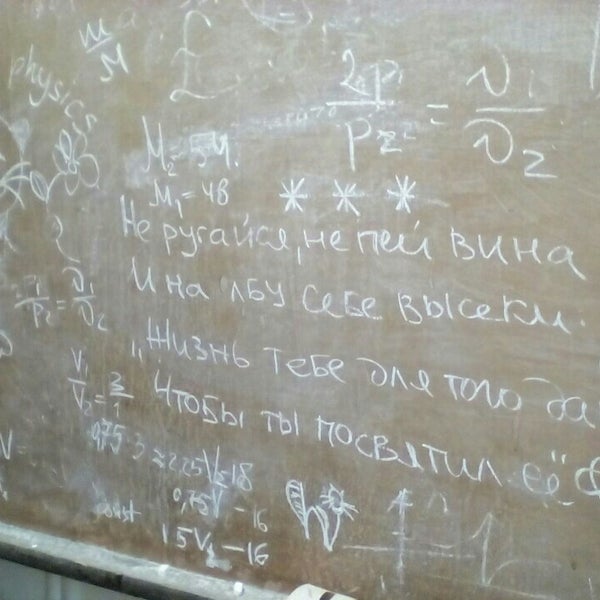 m/M
£
physics
2p/p₂ = ν₁/ν₂
M₂ = 54.
M₁ = 48
* * *
Не ругайся, не пей вина
И на лбу себе высеки.
"Жизнь тебе для того да
Чтобы ты посвятил её"
/p₂ = ν₁/ν₂
V₁/V₂ = 3/1
0,75 · 3 2,25V 18
V=
0,75V - 16
const
1 5V₂ - 16